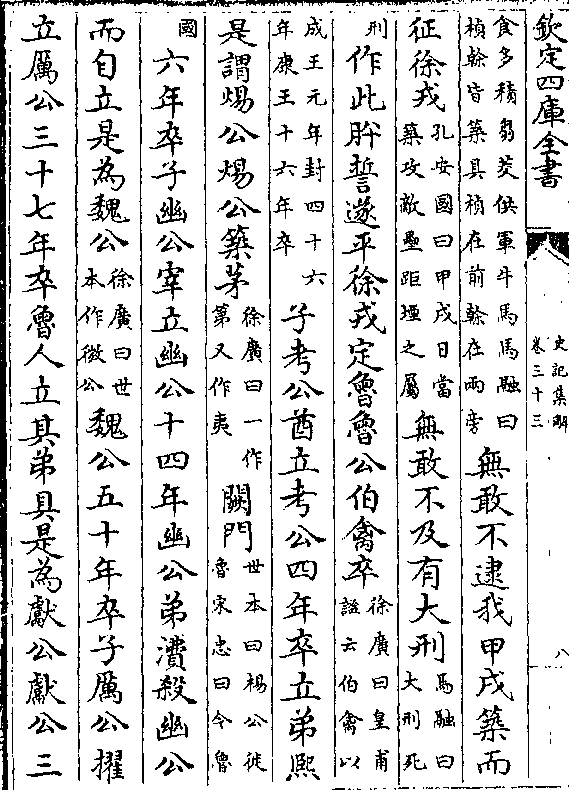 欽定四庫全書
史記集解
卷三十三
八
食多積芻茭供軍牛馬馬融曰
楨榦皆築具楨在前榦在兩旁
無敢不逮我甲戌築而
征徐戎
孔安國曰甲戌日當
築攻敵壘距堙之屬
無敢不及有大刑
馬融曰
大刑死
刑
作此肸誓遂平徐戎定魯魯公伯禽卒
徐廣曰皇甫
謚云伯禽以
成王元年封四十六
年康王十六年卒
子考公酋立考公四年卒立弟熙
是謂煬公煬公築茅
徐廣曰一作
第又作夷
闕門
世本曰煬公徙
魯宋忠曰今魯
國
六年卒子幽公宰立幽公十四年幽公弟㵒殺幽公
而自立是為魏公
徐廣曰世
本作微公
魏公五十年卒子厲公擢
立厲公三十七年卒魯人立其弟具是為獻公獻公三